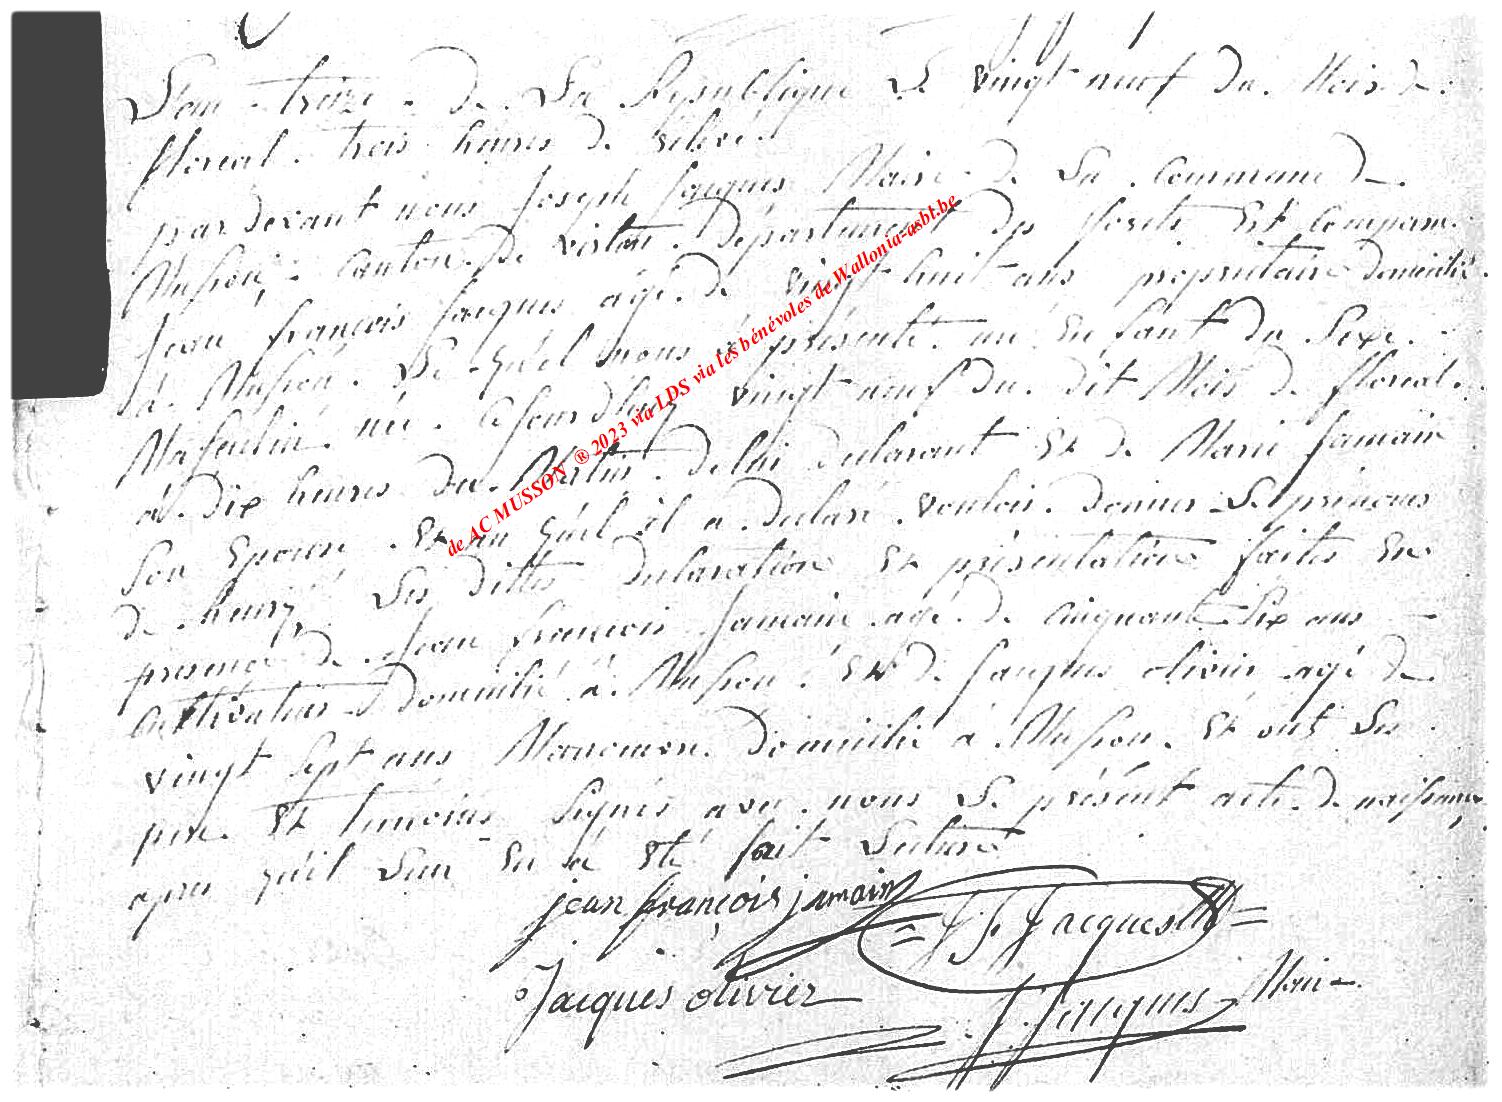 L'an treize de La Republique Le vingt neuf du Mois de
floreal trois heures de relevé.
pardevant nous Joseph Jacques Maire de La Commune de
Musson, canton de virton Département des forêts Est comparu
Jean françois Jacques agé de vingt huit ans propriétaire domicilié
à Musson. Le quel nous a présenté un Enfant du Sexe
Masculin né cejourd'huy vingt neuf du dit Mois de floreal
à dix heures du Matin de lui declarant Et de Marie Jamain
Son Epouse Et au quel il a declaré vouloir donner Le prenoms
de henry, Les dittes declaration Et présentation faites En
presence de Jean françois Jamain agé de cinquante Six ans
cultivateur domicilié à Musson Et de Jacques olivier agé de
vingt Sept ans Domicilié à Musson. Et ont Les
pere Et temoins Signés avec nous Le présent acte de naissance
apres qu'il Leur En a Eté fait Lecture
jean françois jamain
J F Jacques
Jacques olivier
J Jacques Maire
de AC MUSSON ® 2023 via LDS via les bénévoles de Wallonia-asbt.be